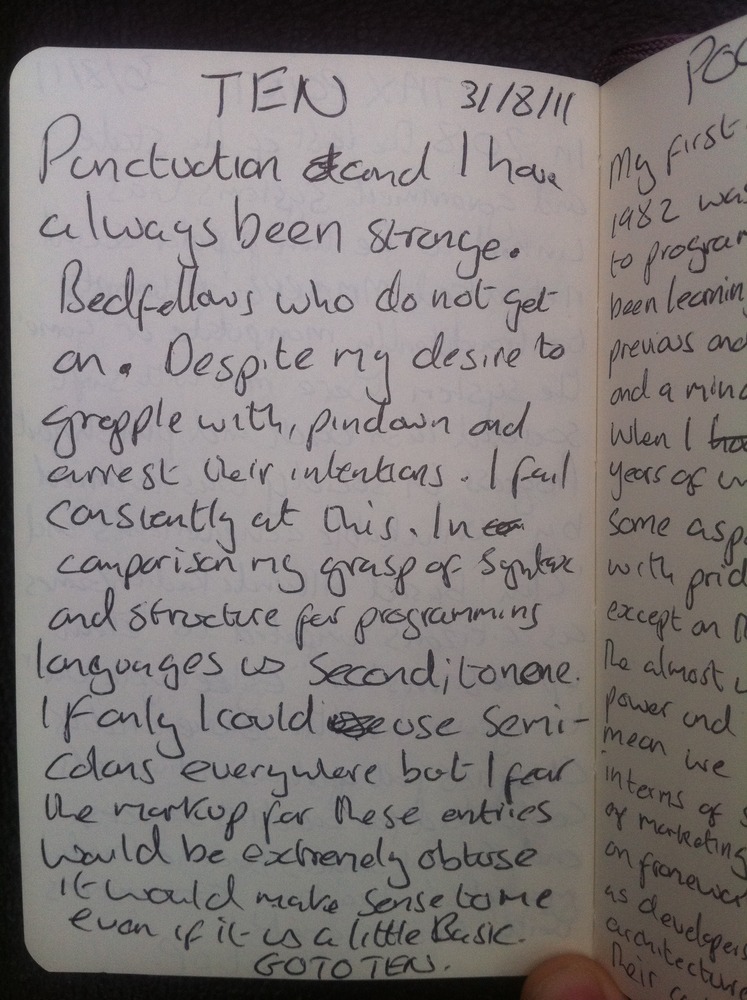 TEN 31/8/11
Punctuation and I have
always been strange.
Bedfellows who do not get
on. Despite my desire to
grapple with, pindown and
arrest their intentions. I fail
constently at this. In
comparison my grasp of Syntax
and structure for programming
languages is Second;tonone.
If only I could use Semi-
Colons everywhere but I fear
the markup for these entries
would be extremely obtuse
it would make sense to me
even if it is a little Basic.
GOTO TEN.
My first
1982 was
to program
been learning
previous and
and a mind
When I
years of
Some asp
with prid
except on
The almost
power and
mean we
interms of
of marketing
on framewor
as developers
architecture
Their